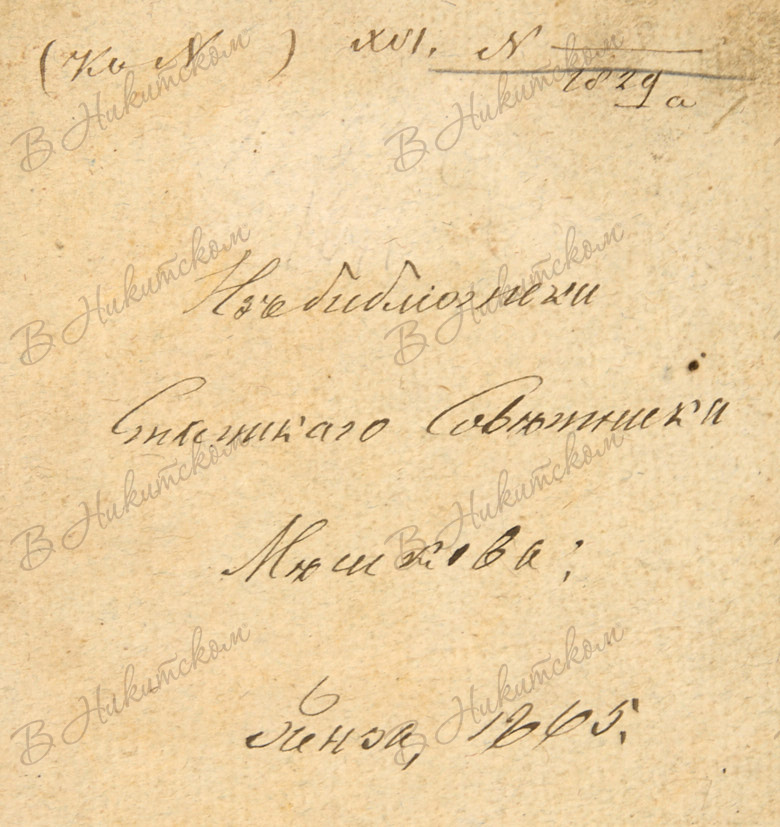 (Къ № ) XVI. № ———
1829 а
Изъ библіотеки
Статскаго Совѣтника
Мѣшкова:
Пенза, 1865.
В Никитском
В Никитском
В Никитском
В Никитском
В Никитском
В Никитском
В Никитском
В Никитском